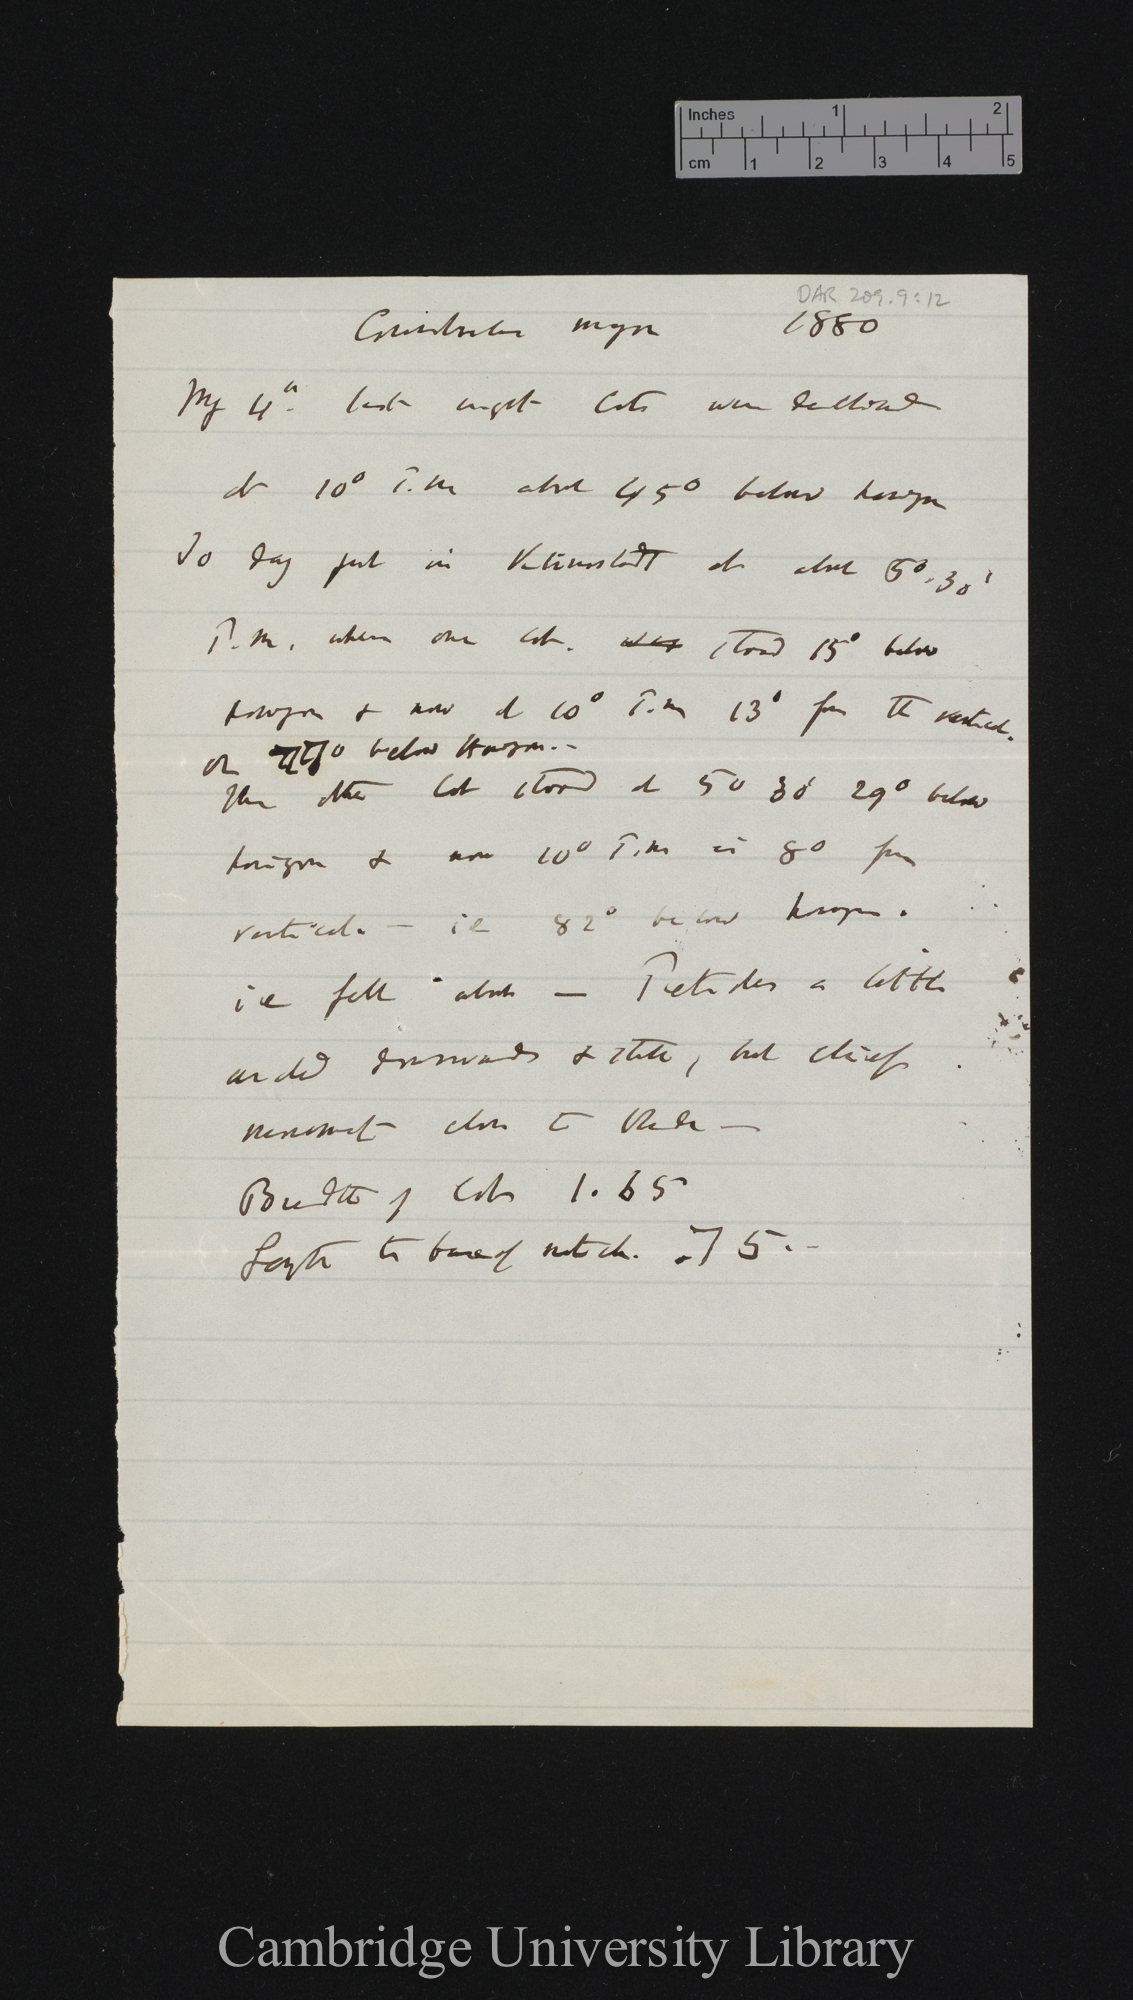 Inches 1 2
cm 1 2 3 4 5
DAR 209.9:12
Convolvulus major 1880
May 4th. last night Cots were declined
at 10° P.m about 45° below horizon
To day put in at about 5°.30'
P.m, when one Cot. was stood 15° below
horizon & now at 10° P.m 13° from the vertical.
or 77° below Horizon.—
The other Cot stood at 5° 30' 29° below
horizon & now 10° P.m is 8° from
vertical. — ie 82° below horizon.
ie fell about — Petioles a little
arched downwards & , but chiefly
movement close to blade —
Breadth of Cots 1.65
Length to base of notch. .75.—
Cambridge University Library